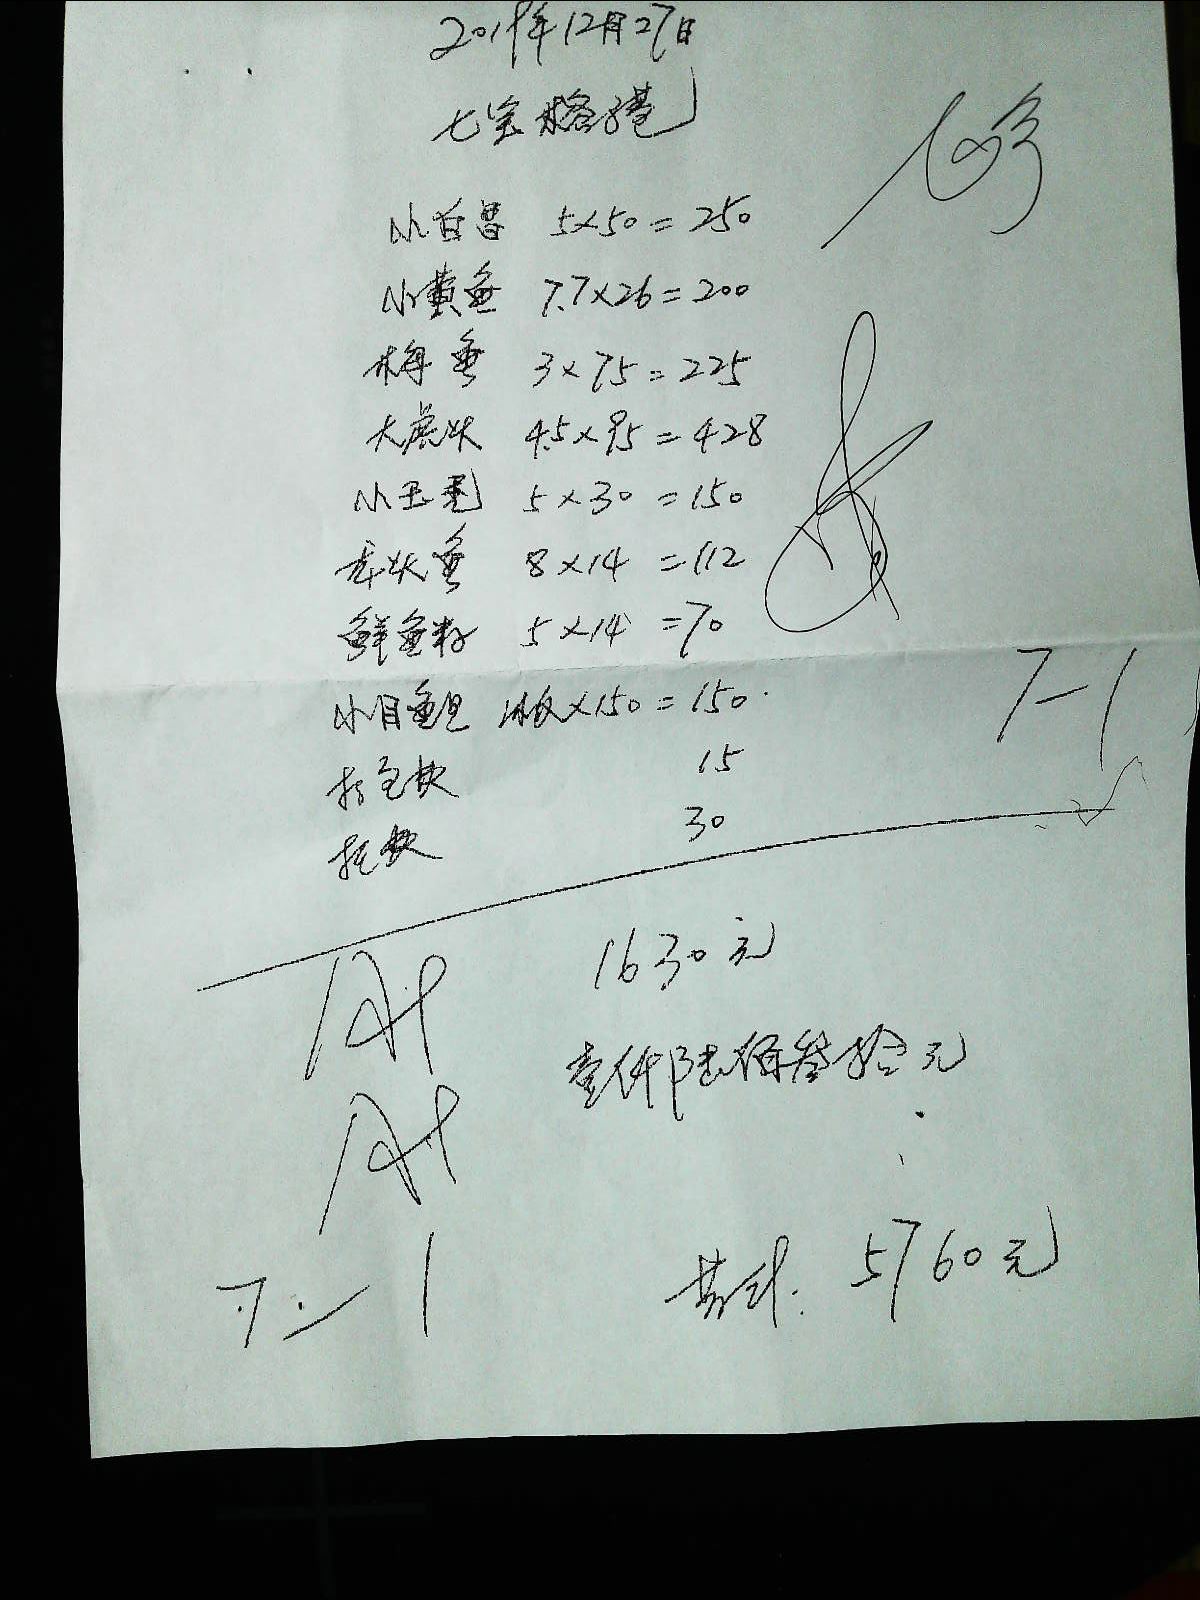 2019年12月27日
七宝 格子巷
小白昌 5×50=250
小黄鱼 7.7×26=200
梅鱼 3×75=225
大虎头 4.5×95=428
小玉秃 5×30=150
龙头鱼 8×14=112
鲜鱼籽 5×14=70
小目鱼旦 1板×150=150
15
30
7-1
1630元
壹仟陆佰叁拾元
共计. 5760元
7-1